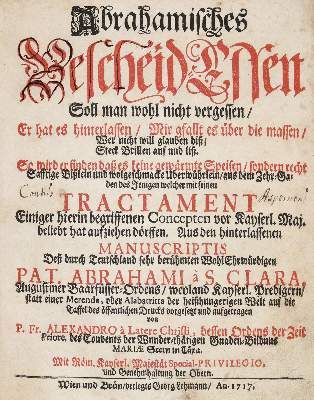 Abrahamisches
Bescheid-Essen
Soll man wohl nicht vergessen/
Er hat es hinterlassen/ Mir gfallt es über die massen/
Wer nicht will glauben diß/
Steck Brillen auf und liß.
So wird er finden daß es keine gewärmte Speisen/ sondern recht
Safftige Bißlein und wolgeschmacke Uberwührlein/ aus dem Zehr-Ga-
den des Jenigen welcher mit seinen
TRACTAMENT
Einiger hierin begriffenen Concepten vor Kayserl. Maj.
beliebt hat aufziehen dörffen. Aus den hinterlassenen
MANUSCRIPTIS
Deß durch Teutschland sehr berühmten Wohl Ehrwürdigen
PAT. ABRAHAMI à S. CLARA,
Augustiner Baarfüsser-Ordens/ weyland Kayserl. Predigern/
statt einer Merenda, oder Alabatritta der heißhungerigen Welt auf die
Taffel des öffentlichen Drucks vorgesetzt und aufgetragen
von
P. Fr. ALEXANDRO à Latere Christi, dessen Ordens der Zeit
Priore, des Convents der Wunder-thätigen Gnaden-Bildnuß
MARIÆ Stern in Taxa.
Mit Röm. Kayserl. Majestät Special-PRIVILEGIO,
und Genehmhaltung der Obern.
Wien und Brünn/ verlegts Georg Lehmann/ An. 1717.